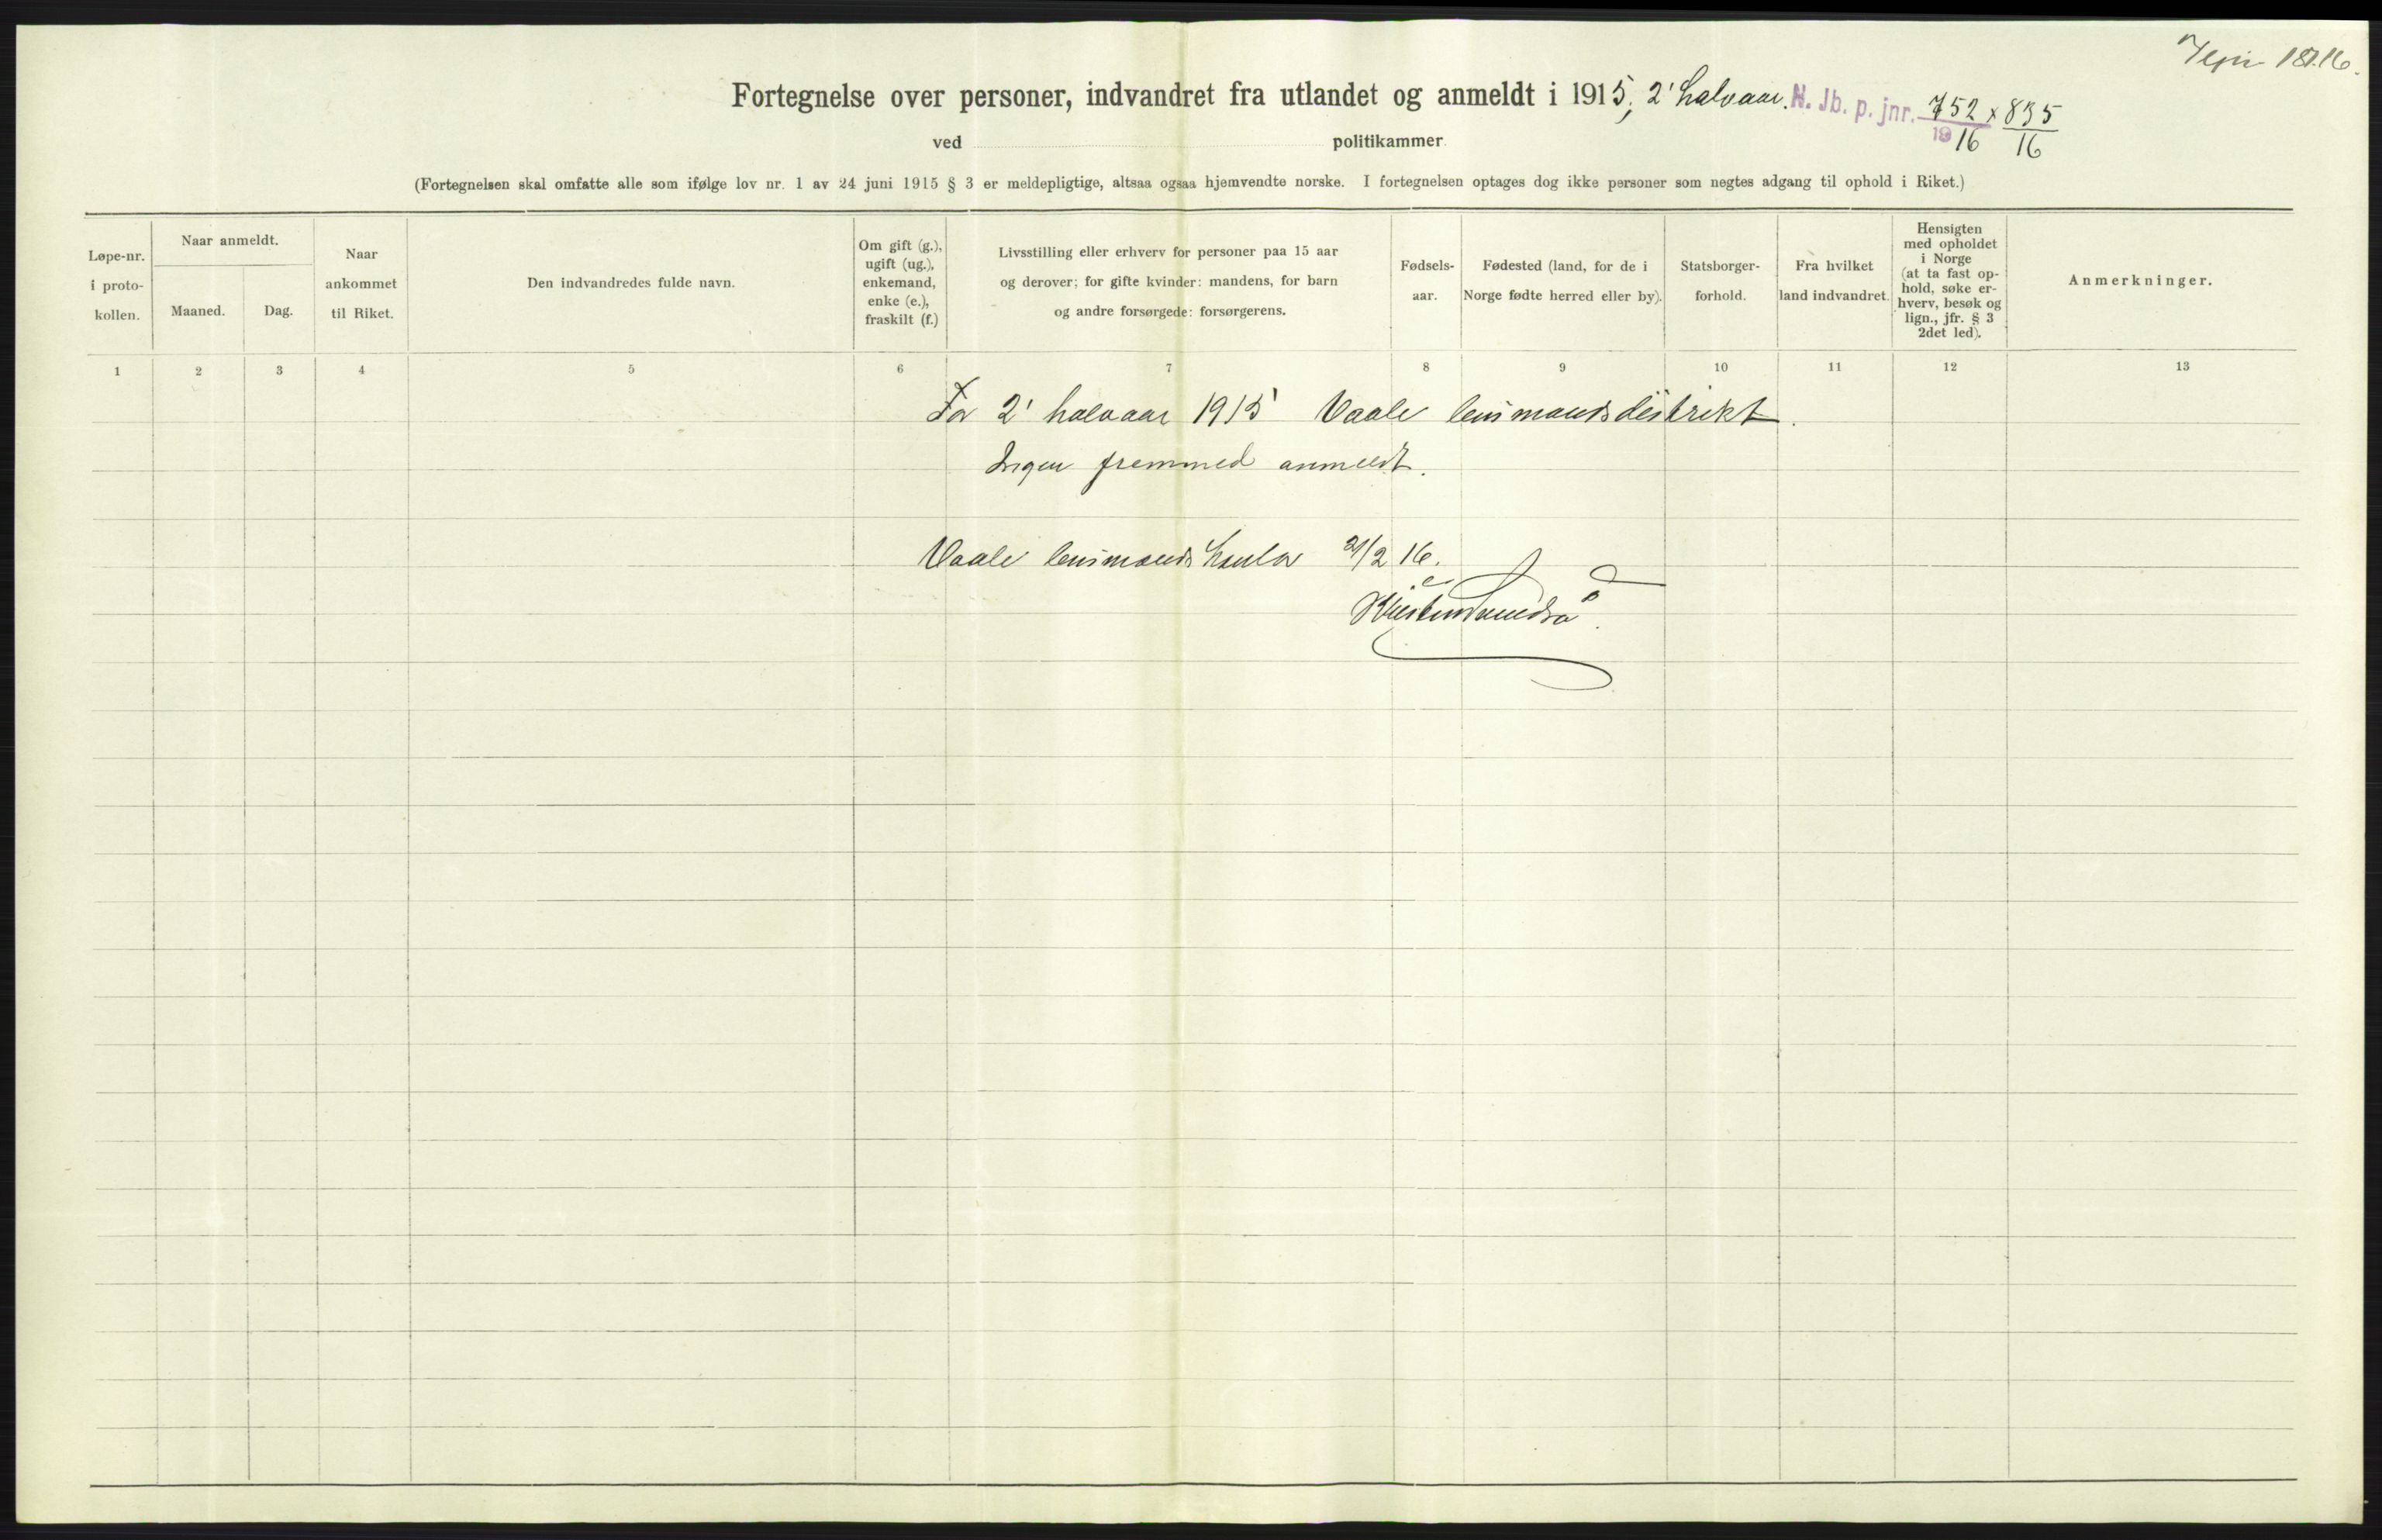 18
Fortegnelse over personer, indvandret fra utlandet og anmeldt i 1915, 2' halvaar. N. Jb. p. jnr. 752/1916 x 835/16
ved politikammer
(Fortegnelsen skal omfatte alle som ifølge lov nr. 1 av 24 juni 1915 § 3 er meldepligtige, altsaa ogsaa hjemvendte norske. I fortegnelsen optages dog ikke personer som negtes adgang til ophold i Riket.)
Løpe-nr.
i proto-
kollen.
Naar anmeldt.
Maaned.
Dag.
Naar
ankommet
til Riket.
Den indvandredes fulde navn.
Om gift (g.),
ugift (ug.),
enkemand,
enke (e.),
fraskilt (f.)
Livsstilling eller erhverv for personer paa 15 aar
og derover; for gifte kvinder: mandens, for barn
og andre forsørgede: forsørgerens.
Fødsels-
aar.
Fødested (land, for de i
Norge fødte herred eller by).
Statsborger-
forhold.
Fra hvilket
land indvandret.
Hensigten
med opholdet
i Norge
(at ta fast op-
hold, søke er-
hverv, besøk og
lign., jfr. § 3
2det led).
Anmerkninger.
1 2 3 4 5 6 7 8 9 10 11 12 13
For 2' halvaar 1915 Vaale lensmandsdistrikt.
Ingen fremmed anmeldt.
Vaale lensmands kontor 21/2 16.